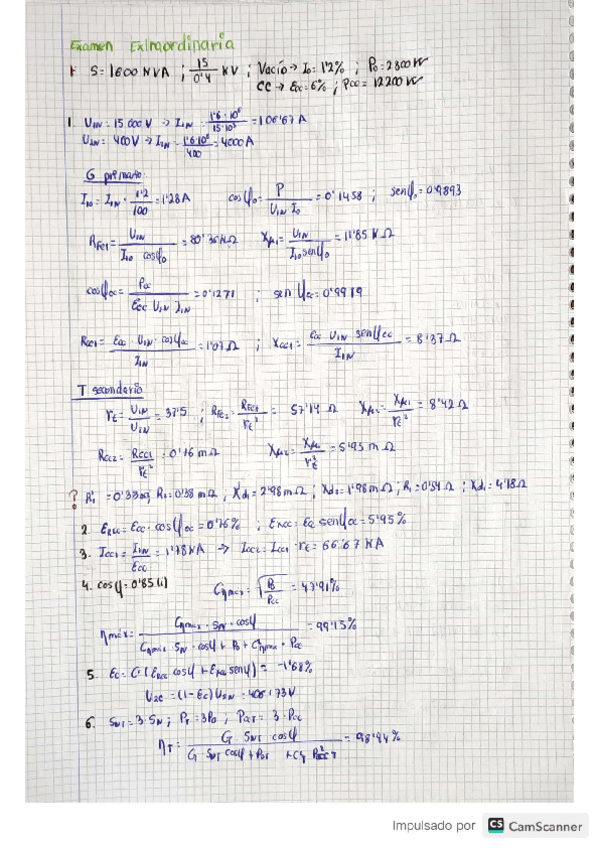 Examen Extraordinaria
S=1600 KVA ; 15/0'4 KV ; Vacío → I₀=1'2% ; P₀=2800 W
CC → Ecc=6% ; Pcc=12200 W
1. U₁N=15.000V → I₁N= 1'6·10⁶/15·10³ =106'67A
U₂N=400V → I₂N= 1'6·10⁶/400 =4000A
G primario
I₁₀=I₁N· 1'2/100 =1'28A cosφ₀= P/U₁N I₀ =0'1458 ; senφ₀=0'9893
RFe1= U₁N/I₁₀ cosφ₀ =80'36KΩ Xμ₁= U₁N/I₁₀senφ₀ =11'85KΩ
cosφcc= Pcc/Ecc U₁N I₁N =0'1271 ; sen φcc=0'9919
Rcc1= Ecc·U₁N·cosφcc/I₁N =1'07Ω ; Xcc1= Ecc U₁N senφcc/I₁N =8'37Ω
T secundario
rt= U₁N/U₂N =37'5 ; RFe2= RFe1/rt² = 57'14Ω Xμ₂= Xμ₁/rt² =8'42Ω
Rcc2= Rcc1/rt² =0'76mΩ = 5'95mΩ
? ; X'd₁=2'98mΩ ; Xd₂=2'98mΩ ; R₁=0'54Ω ; Xd₁=4'18Ω
2. ERcc=Ecc·cosφcc=0'76% ; EXcc=Ecc senφcc=5'95%
3. Icc1= I₁N/Ecc =1'78KA → Icc2=Icc1·rt=66'67KA
4. cosφ=0'85(i) Cηmax= √P₀/Pcc =47'91%
ηmáx= Cηmax·SN·cosφ/Cηmax·SN·cosφ+P₀+C²ηmax·Pcc =99'15%
5. Ec=C·(ERcc cosφ+EXcc senφ)= -1'68%
U₂c=(1-Ec)U₂N=406'73V
6. SNT=3·SN ; PT=3P₀ ; PccT=3·Pcc
ηT= G SNT cosφ/G SNT cosφ+P₀T+ =98'94%
Impulsado por CS CamScanner